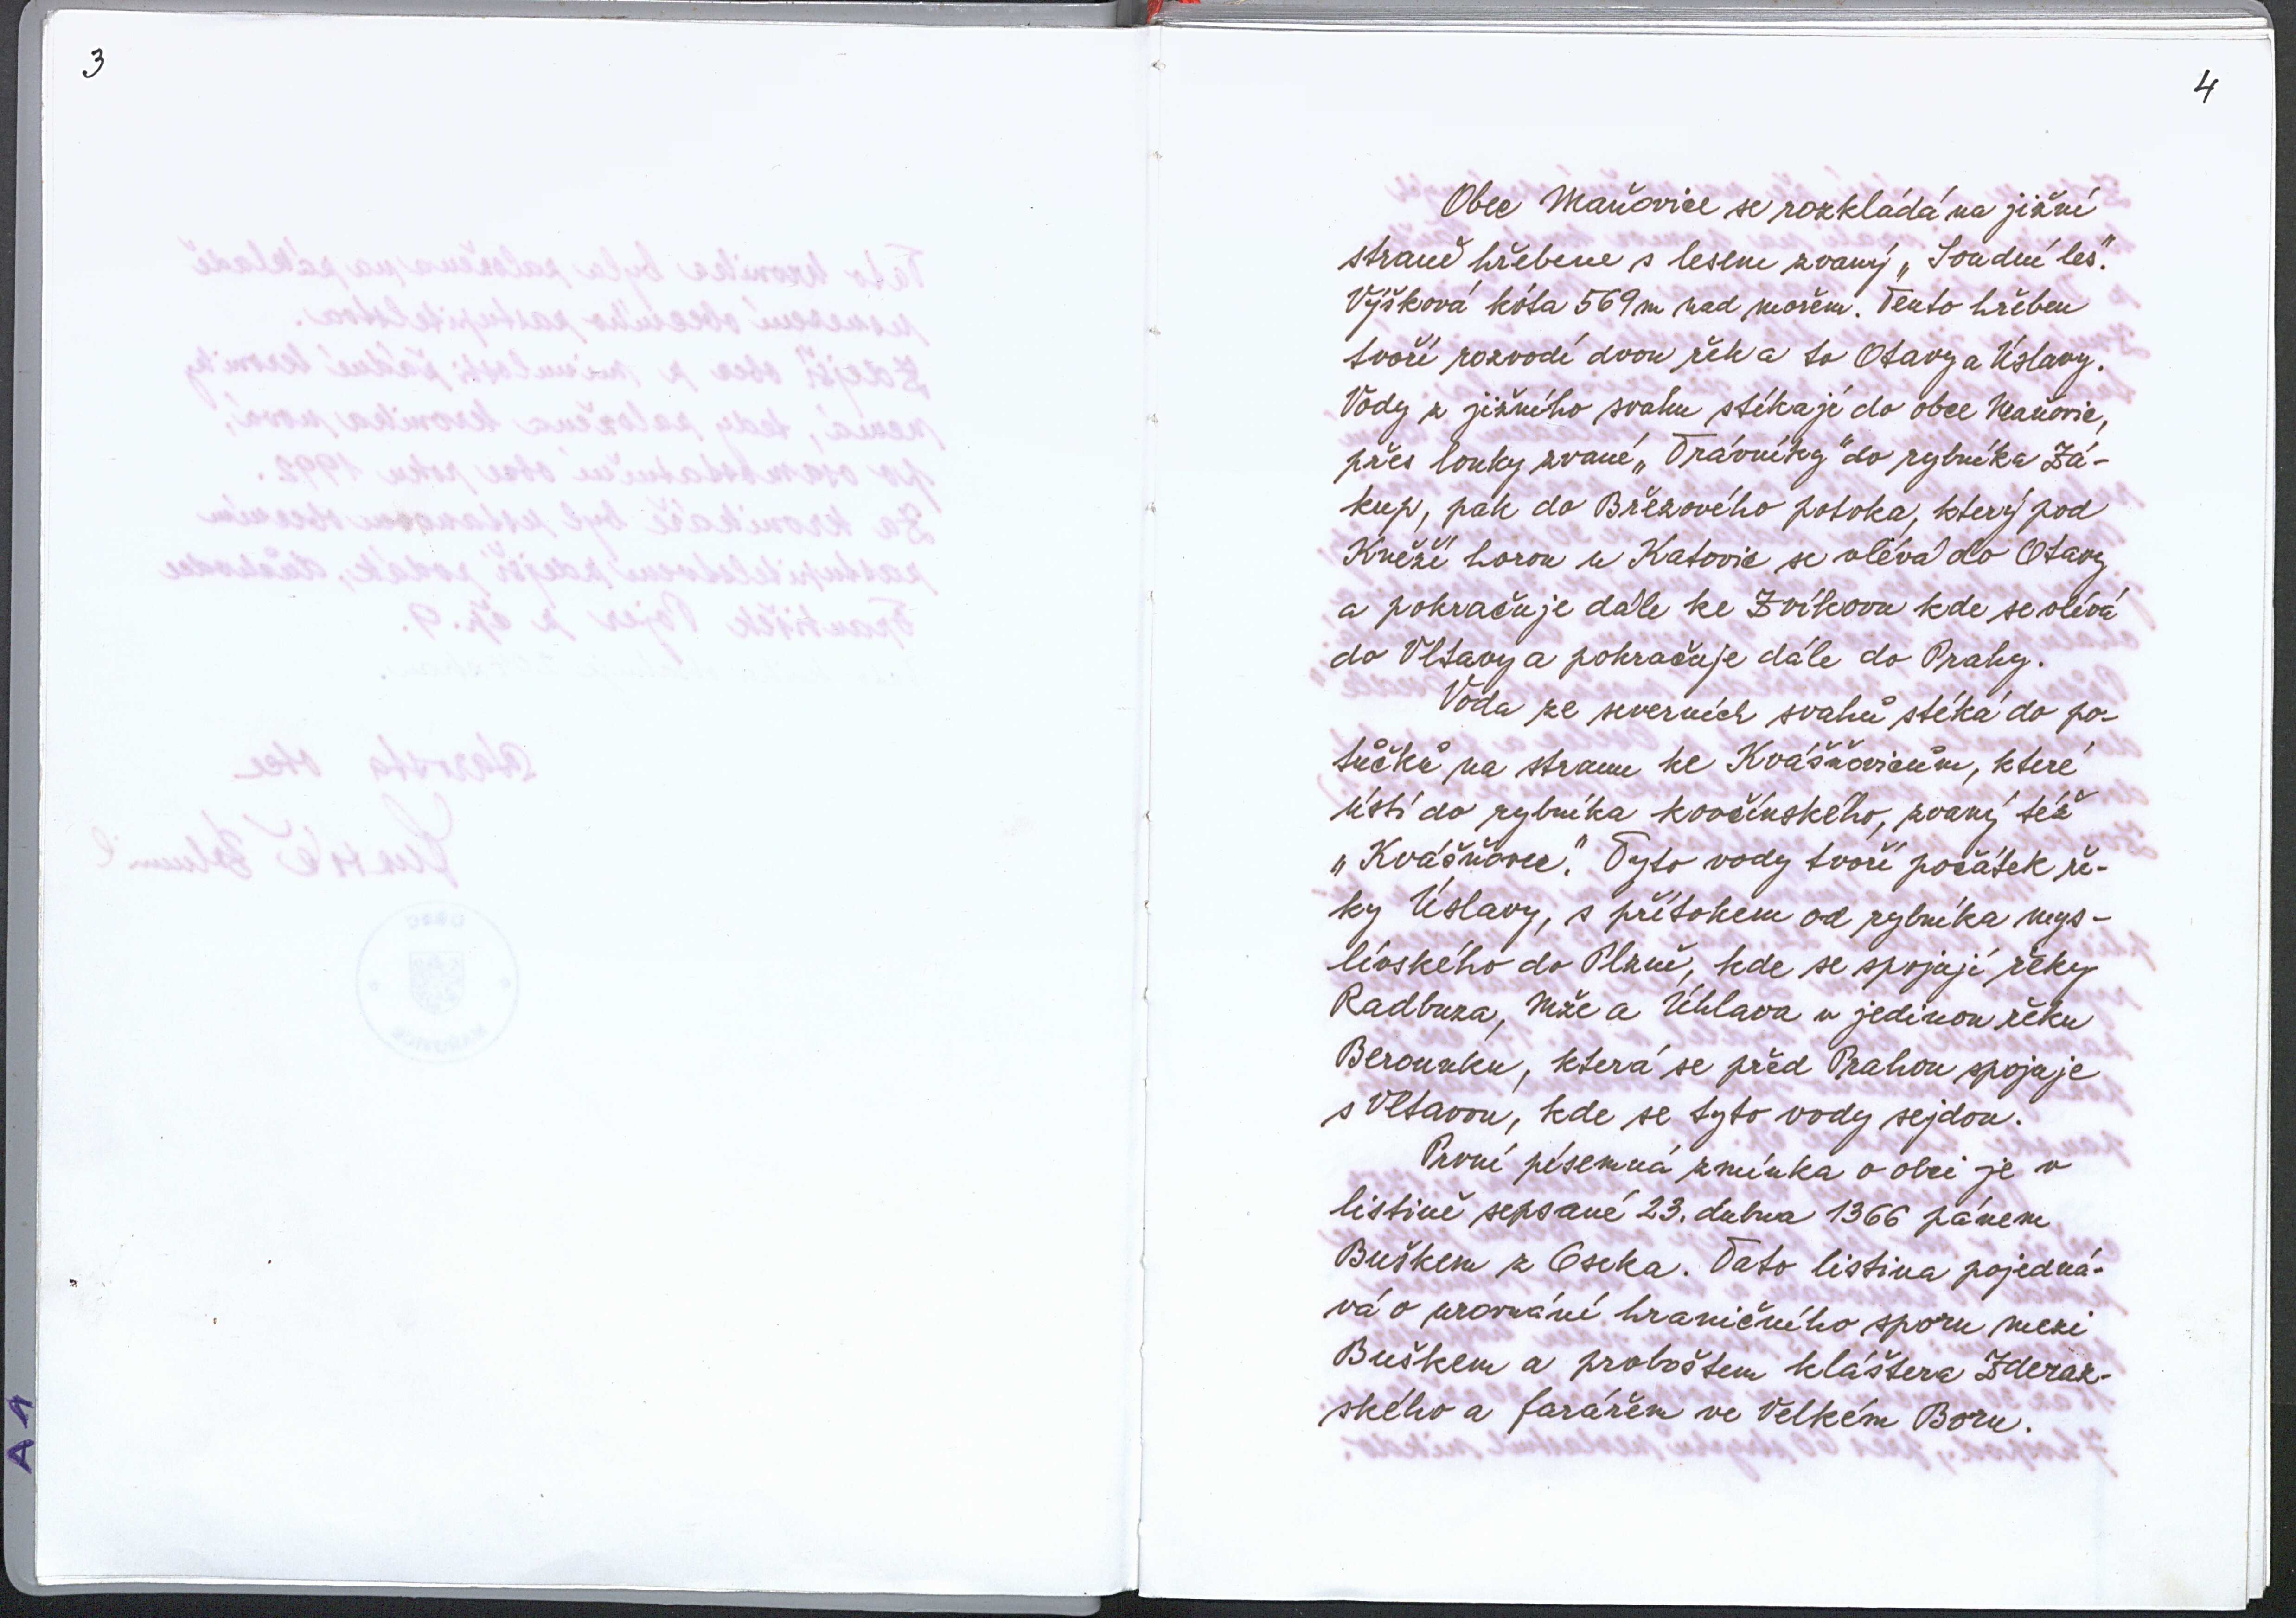 3
4
Obec Maňovice se rozkládá na jižní
straně hřebene s lesem zvaný „Soudní les“.
Výšková kóta 569 m nad mořem. Tento hřeben
tvoří rozvodí dvou řek a to Otavy a Úslavy.
Vody z jižního svahu stékají do obce Maňovic,
přes louky zvané „Trávníky“ do rybníka Zá-
kup, pak do Březového potoka, který pod
Kněží horou u Katovic se vlévá do Otavy
a pokračuje dále ke Zvíkovu kde se vlívá
do Vltavy a pokračuje dále do Prahy.
Voda ze severních svahů stéká do po-
tůčků na stranu ke Kvášňovicům, které
ústí do rybníka kovčínského, zvaný též
„Kvášňovec“. Tyto vody tvoří počátek ře-
ky Úslavy, s přítokem od rybníka mys-
lívského do Plzně, kde se spojují řeky
Radbuza, Mže a Úhlava v jedinou řeku
Berounku, která se před Prahou spojuje
s Vltavou, kde se tyto vody sejdou.
První písemná zmínka o obci je v
listině sepsané 23. dubna 1366 pánem
Buškem z Oseka. Tato listina pojedná-
vá o urovnání hraničního sporu mezi
Buškem a proboštem kláštera Zderaz-
ského a farářem ve Velkém Boru.
A1